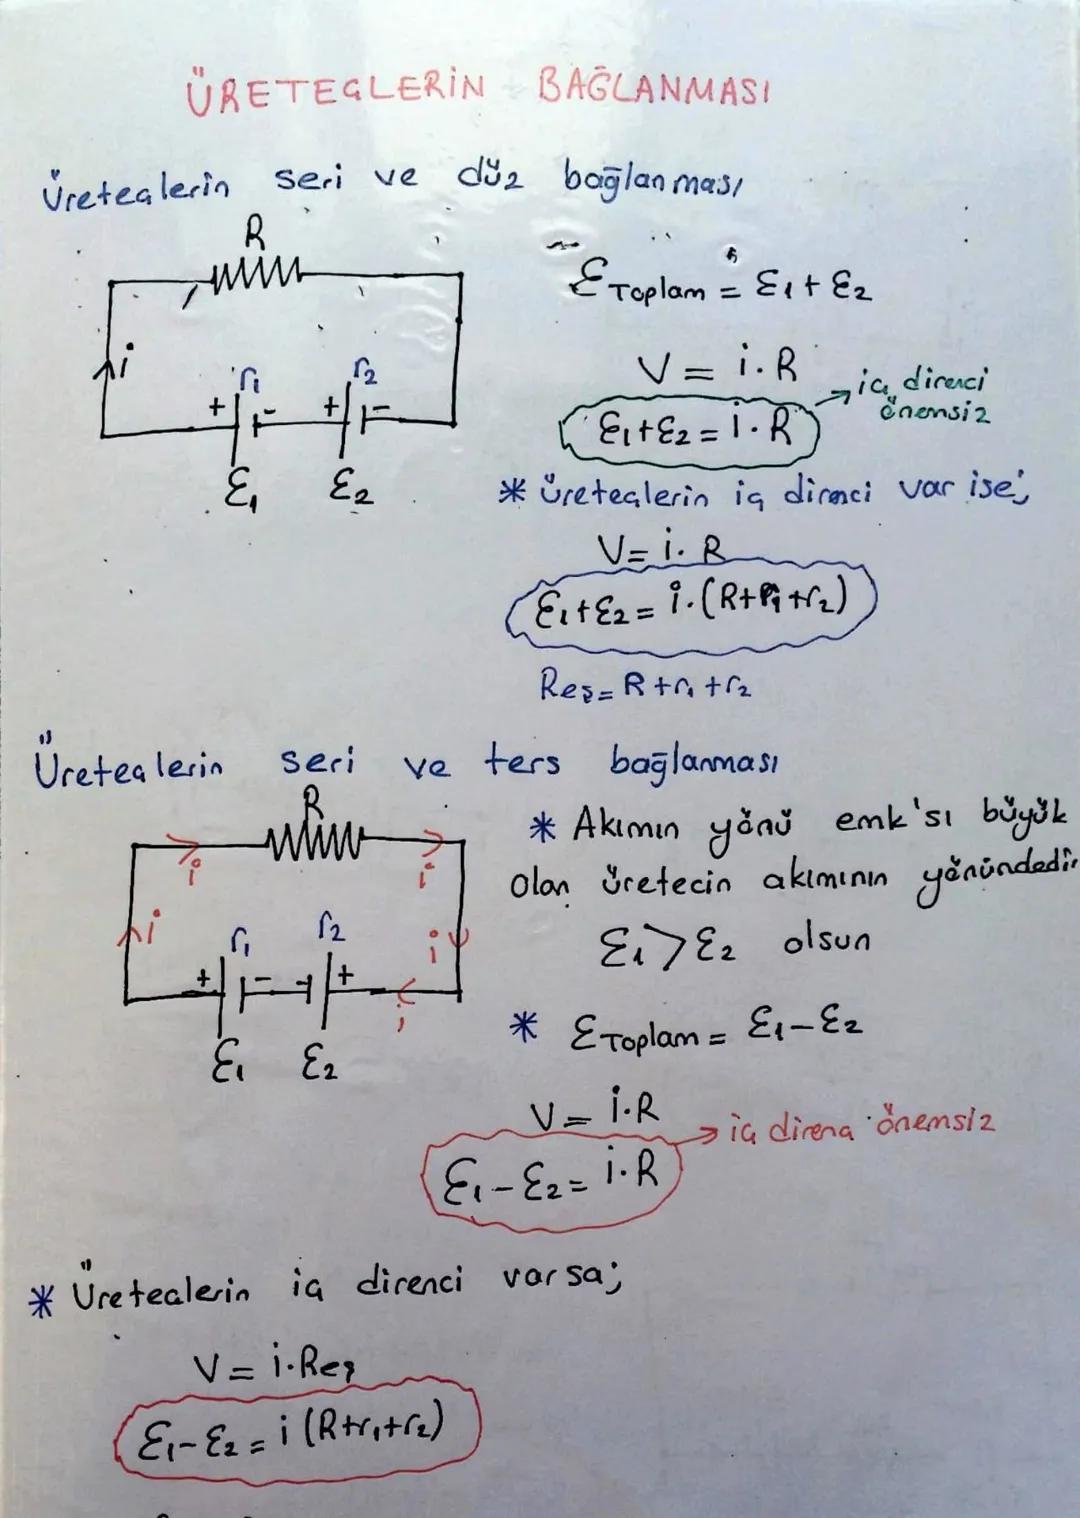 ÜRETEÇLERİN BAĞLANMASI
Üreteçlerin seri ve düz bağlanması
R
i
r1 r2
+ - + -
ε1 ε2
εToplam = ε1 + ε2
V = i.R
ε1+ε2 = i.R → iç direnci önemsiz
* Üreteçlerin iç direnci var ise;
V = i.R
ε1+ε2 = i.(R+r1+r2)
Reş = R+r1+r2
Üreteçlerin seri ve ters bağlanması
R
i i
i r1 r2 i
+ - +
i
ε1 ε2
* Akımın yönü emk'sı büyük
olan üretecin akımının yönündedir
ε1 > ε2 olsun
* εToplam = ε1 - ε2
V = i.R
ε1 - ε2 = i.R → iç direnci önemsiz
* Üreteçlerin iç direnci varsa;
V = i.Reş
ε1 - ε2 = i (R+r1+r2)